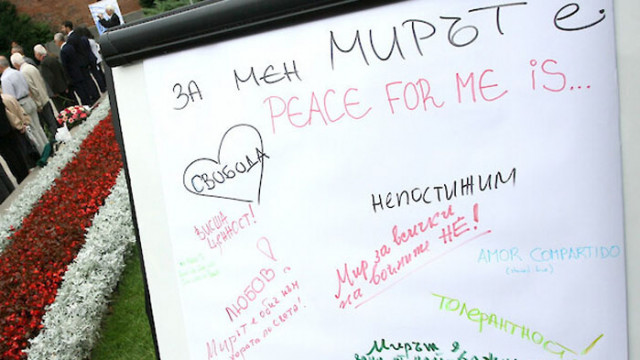 ЗА МЕН МИРЪТ е
PEACE FOR ME iS...
СВОБОДА
НЕПОСТИЖИМ
ВИСША
ЦЕННОСТ!
Мир за всички
на войните НЕ!
AMOR COMPARTIDO
ЛЮБОВ
Мирът е
хората по света!
ТОЛЕРАНТНОСТ!
Мирът е